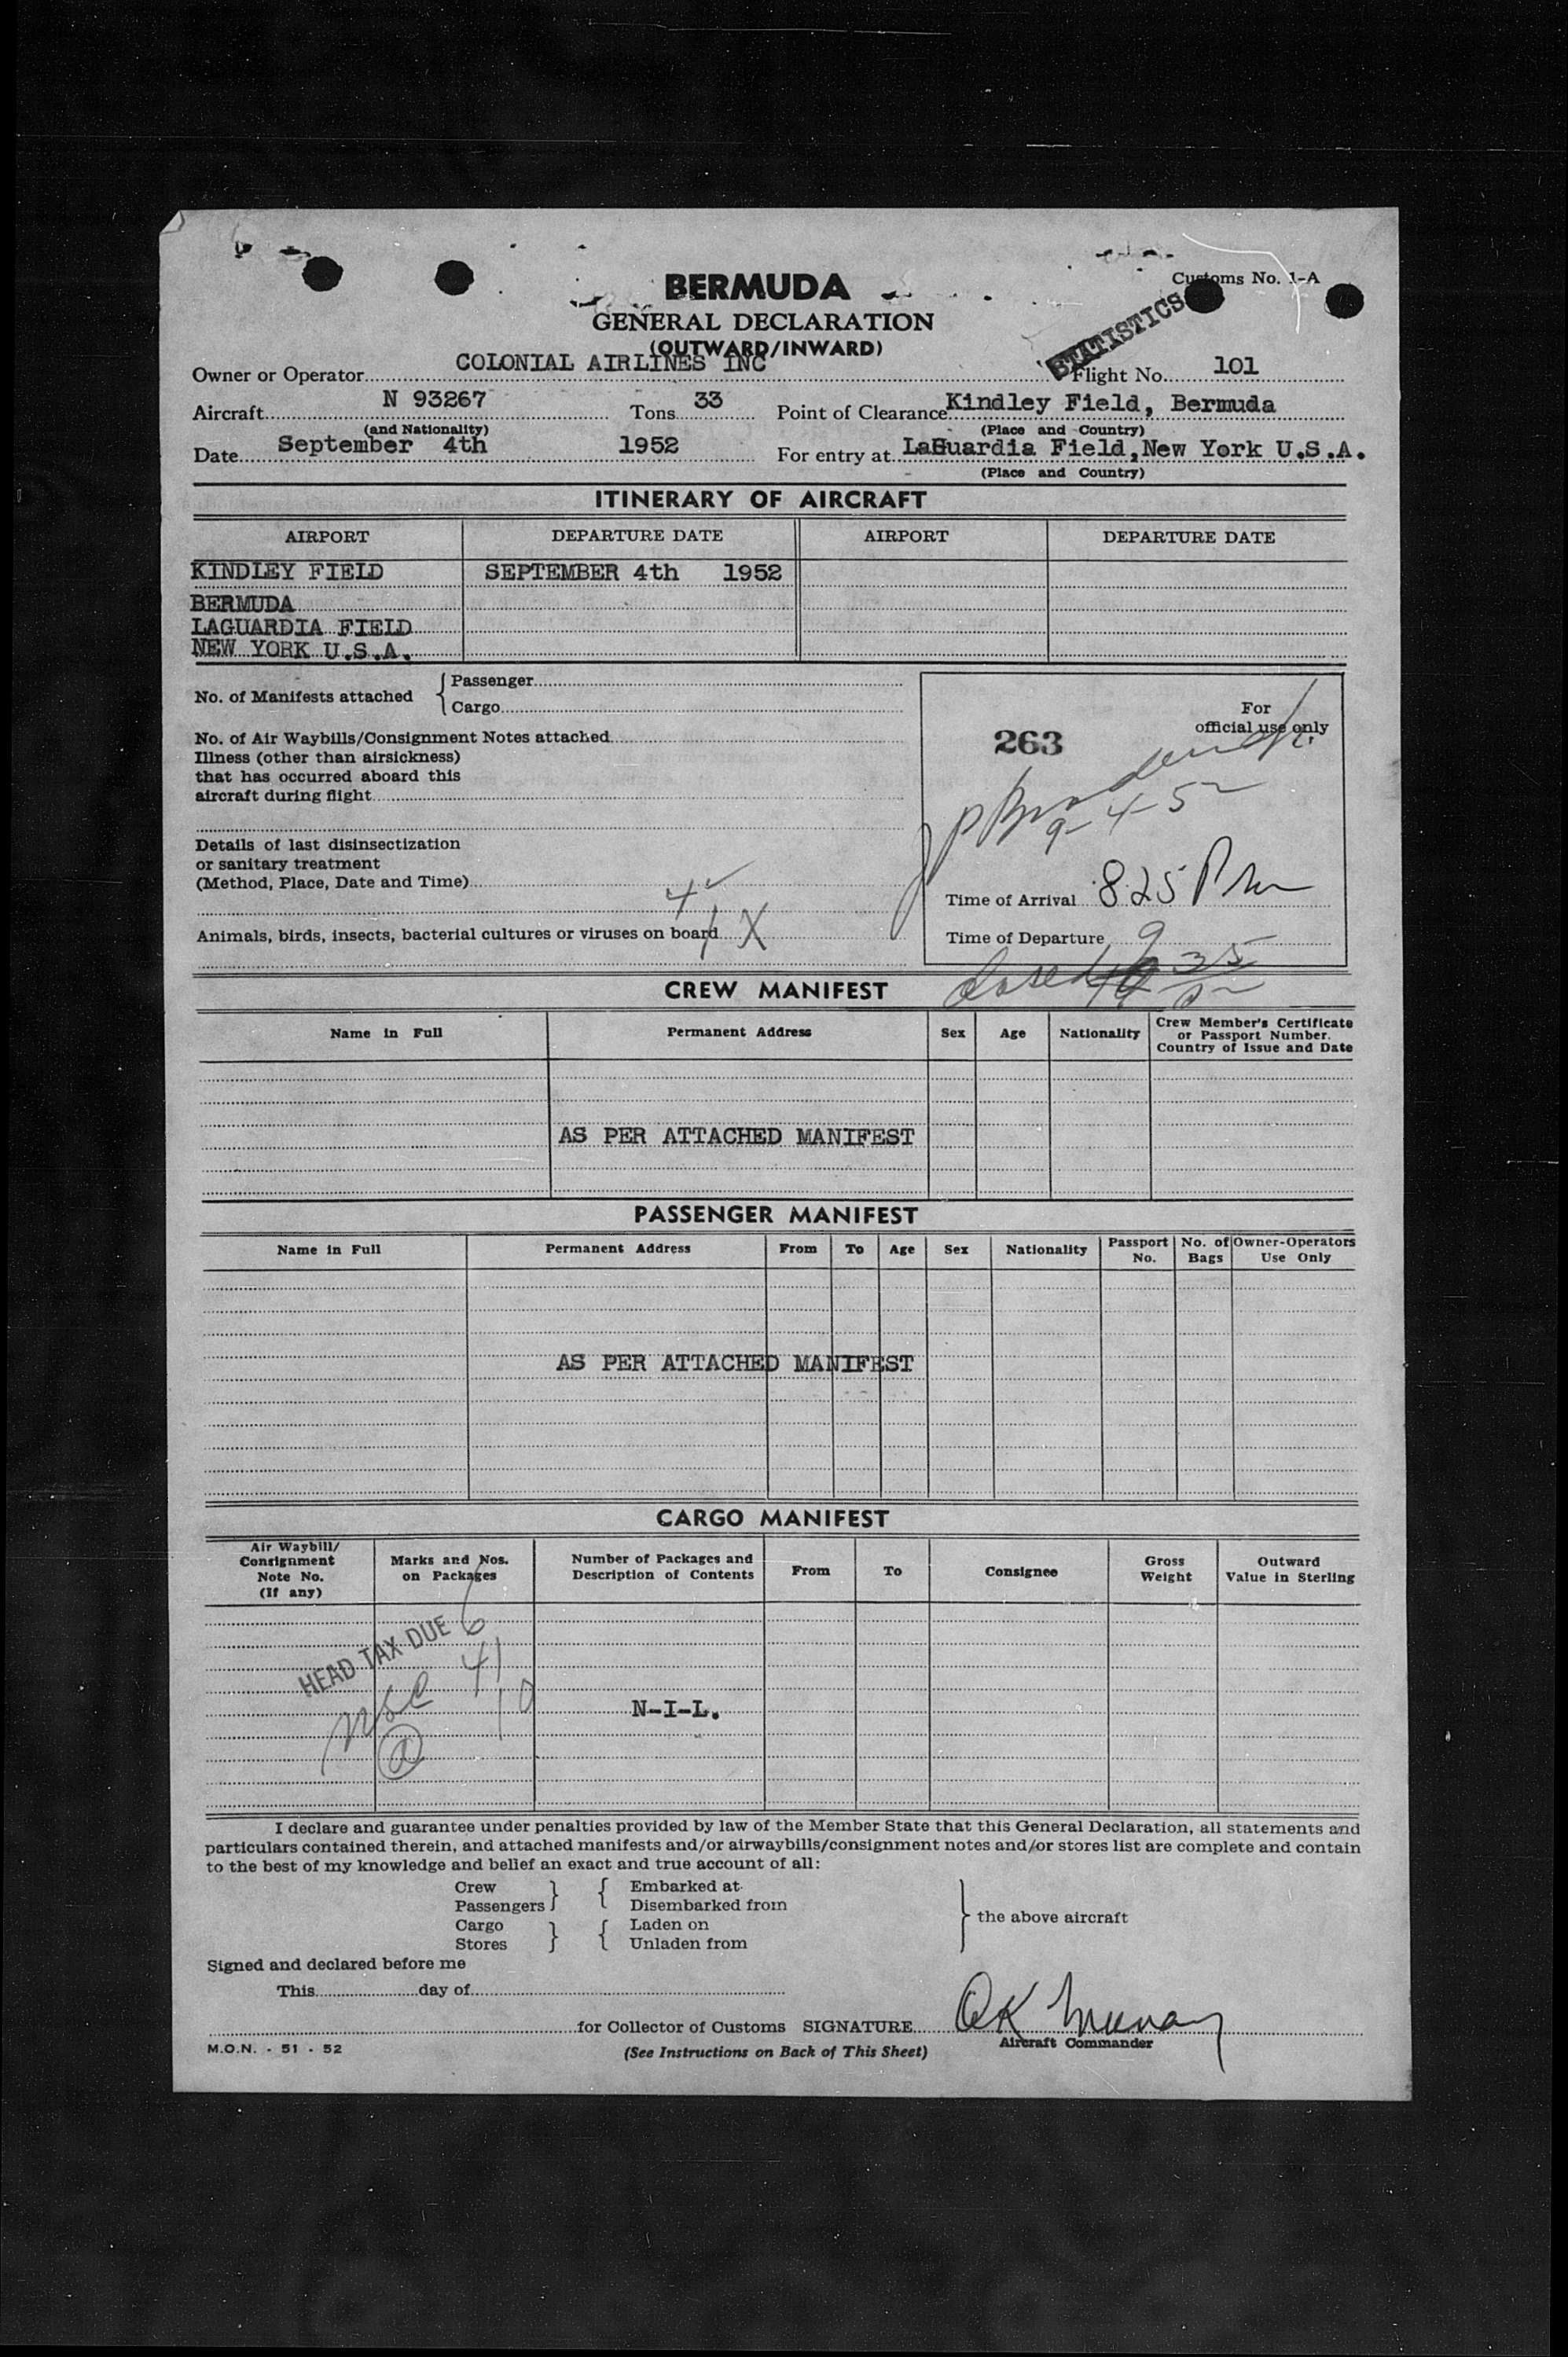 Customs No. 1-A
BERMUDA
GENERAL DECLARATION
(OUTWARD/INWARD)
STATISTICS
Owner or Operator COLONIAL AIRLINES INC Flight No. 101
Aircraft N 93267 Tons 33 Point of Clearance Kindley Field, Bermuda
(and Nationality) (Place and Country)
Date September 4th 1952 For entry at LaGuardia Field, New York U.S.A.
(Place and Country)
ITINERARY OF AIRCRAFT
AIRPORT DEPARTURE DATE AIRPORT DEPARTURE DATE
KINDLEY FIELD SEPTEMBER 4th 1952
BERMUDA
LAGUARDIA FIELD
NEW YORK U.S.A.
No. of Manifests attached { Passenger
Cargo
No. of Air Waybills/Consignment Notes attached
Illness (other than airsickness)
that has occurred aboard this
aircraft during flight
Details of last disinsectization
or sanitary treatment
(Method, Place, Date and Time)
4
Animals, birds, insects, bacterial cultures or viruses on board X
For
official use only
263
9-4-52
Time of Arrival 825 Pm
Time of Departure 9
closed 35
CREW MANIFEST
Name in Full Permanent Address Sex Age Nationality Crew Member's Certificate
or Passport Number.
Country of Issue and Date
AS PER ATTACHED MANIFEST
PASSENGER MANIFEST
Name in Full Permanent Address From To Age Sex Nationality Passport No. No. of Bags Owner-Operators Use Only
AS PER ATTACHED MANIFEST
CARGO MANIFEST
Air Waybill/
Consignment
Note No.
(If any)
Marks and Nos.
on Packages
Number of Packages and
Description of Contents
From To Consignee Gross Weight Outward Value in Sterling
HEAD TAX DUE 6
41
10
N-I-L.
I declare and guarantee under penalties provided by law of the Member State that this General Declaration, all statements and
particulars contained therein, and attached manifests and/or airwaybills/consignment notes and/or stores list are complete and contain
to the best of my knowledge and belief an exact and true account of all:
Crew } { Embarked at
Passengers Disembarked from
Cargo } { Laden on } the above aircraft
Stores Unladen from
Signed and declared before me
This day of
for Collector of Customs SIGNATURE OK Murray
Aircraft Commander
M.O.N. - 51 - 52 (See Instructions on Back of This Sheet)